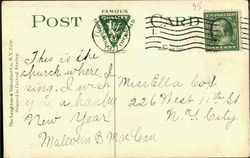 FAMOUS
POST CARD
QUALITY
The Leighton & Valentine Co., N.Y. City.
Printed in United States.
This is the
church where I
sing. I wish
you a happy
New Year
Malcolm B MacCan
Miss Ella
226 West 11th St
N. Y. City